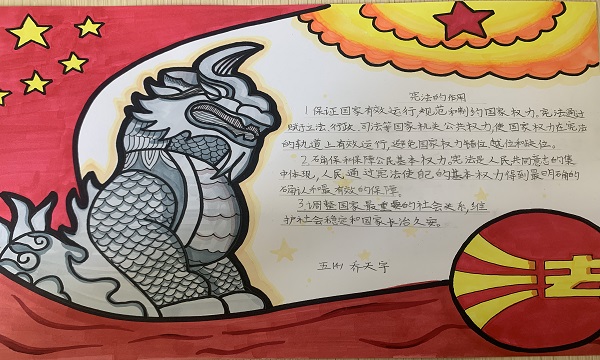 宪法的作用
1.保证国家有效运行,规范和制约国家权力。宪法通过
赋予立法、行政、司法等国家机关公共权力,使国家权力在宪法
的轨道上有效运行,避免国家权力错位越位和缺位。
2.确保和保障公民基本权力,宪法是人民共同意志的集
中体现,人民通过宪法使自己的基本权力得到最明确的
确认和最有效的保障。
3.调整国家最重要的社会关系,维
护社会稳定和国家长治久安。
五(4) 乔天宇
法